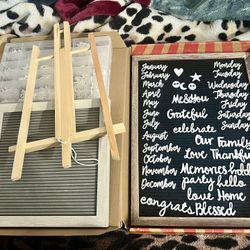 January
February
March
April
May
June
July
August
September
October
November
December
Me&You
Grateful
celebrate
Monday
Tuesday
Wednesday
Thursday
Friday
Saturday
Sunday
Our Family
Love Thankful
Memories
party hello
love Home
congrats Blessed